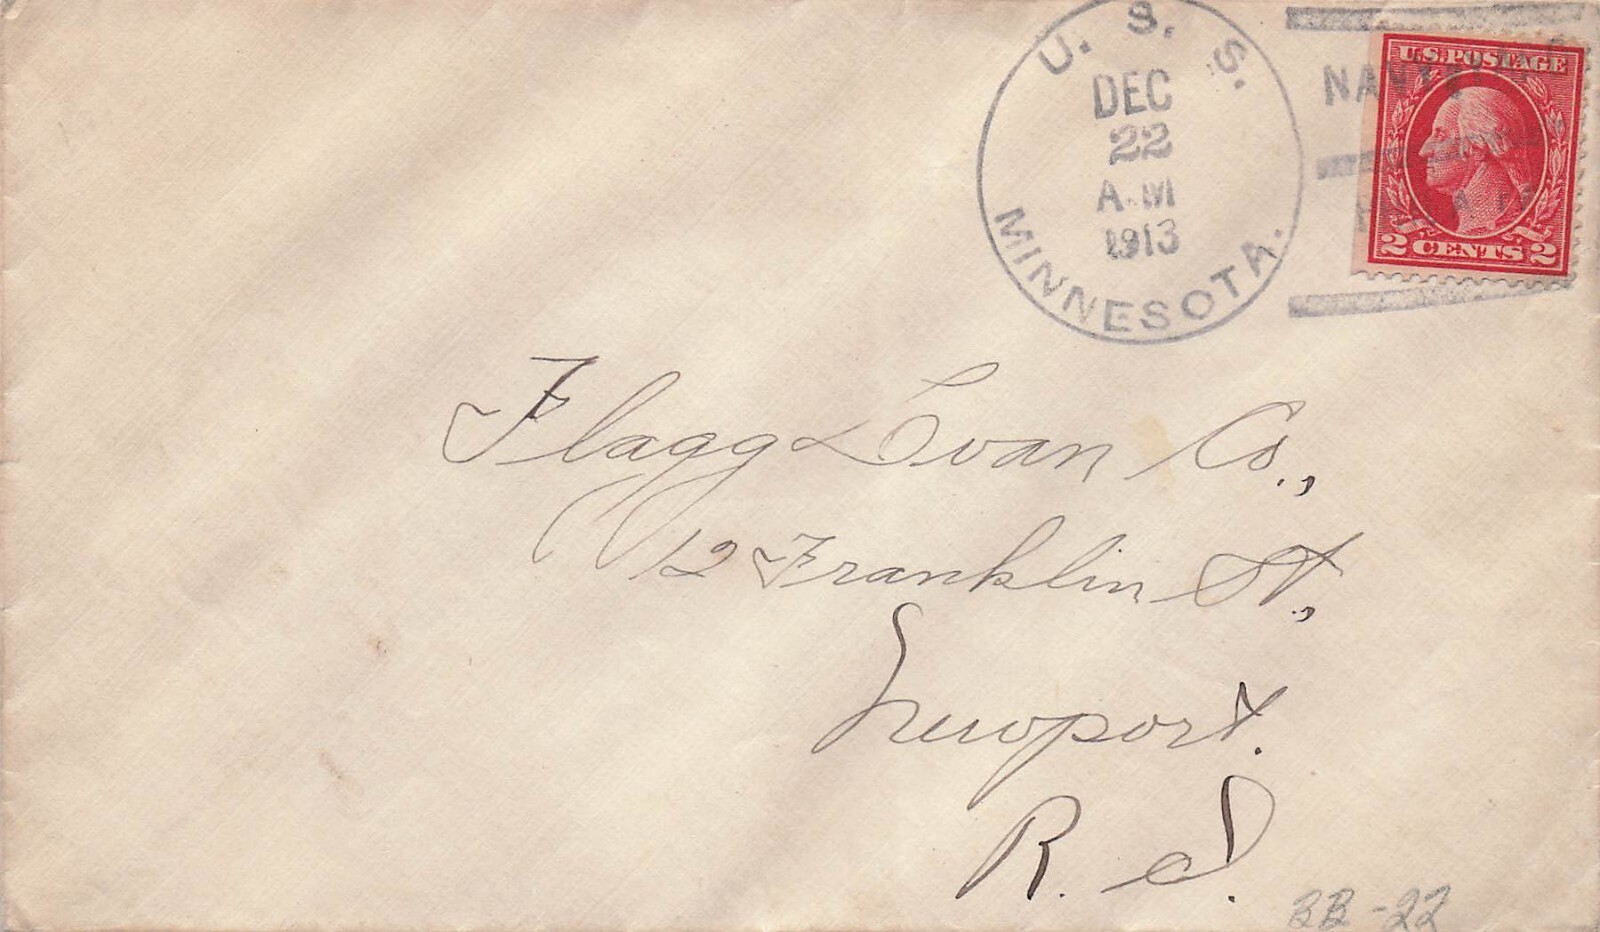 U. S. S.
DEC
22
A.M
1913
MINNESOTA.
U.S. POSTAGE
2 CENTS 2
Flagg Loan Co.,
12 Franklin St.,
Newport.
R. I.
BB-22